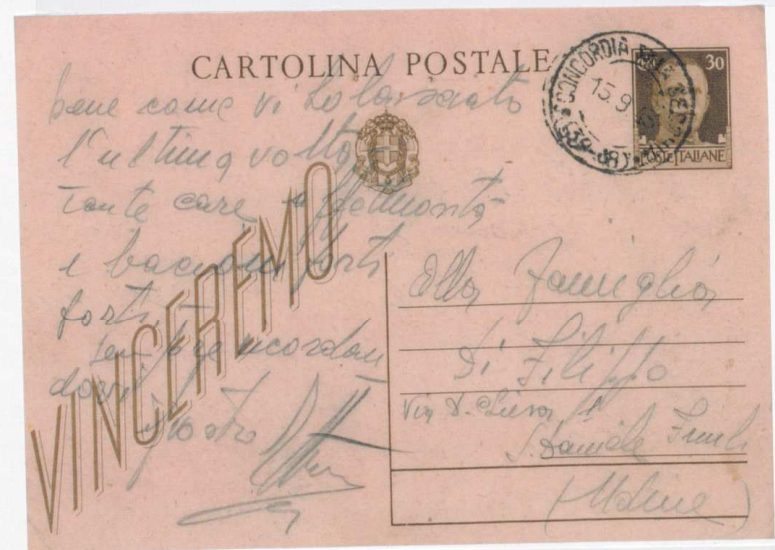 CARTOLINA POSTALE
CONCORDIA SULLA SECCHIA
15.9
30
POSTE ITALIANE
VINCEREMO
bene come vi ho lasciato
l'ultima volta
Tante care affettuosità
e bacioni forti
forti,
Sempre ricordan
dovi
Vostro
Alla Famiglia
Di Filippo
Via
S. Daniele Friuli
(Udine)